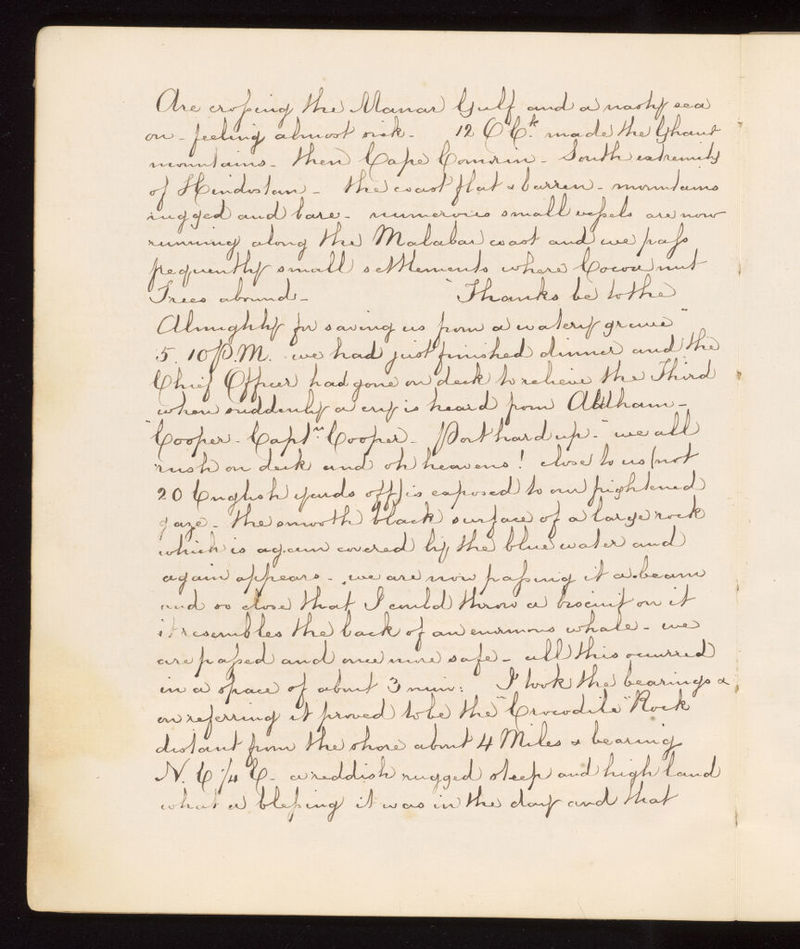 Are crossing the Manar Gulf and a nasty sea
on - feeling almost sick - 12 O'Ck. made the Ghaut
mountains - then Cape Comorin - South extremity
of Hindostan - the coast flat & barren - mountains
rugged and bare - numerous small vessels are now
running along the Malabar coast and we pass
frequently small settlements where Cocoa nut
Trees abound - "Thanks be to the
Almighty for saving us from a watery grave"
5. 10 P.M. we had just finished dinner and the
Chief Officer had gone on deck to relieve the Third
when suddenly a cry is heard from Aldham -
"Cooper - Captn. Cooper - Port hard up -" we all
rush on deck and oh heavens! close to us (not
20 English yards off) is exposed to our frightened
gaze - the smooth black surface of a large rock
which is again covered by the blue water and
again appears - we are now passing it a.beam
and so close that I could throw a biscuit on it
it resembles the back of an enormous whale - we
are passed and once more safe - all this occurred
in a space of about 3 min: I took the bearings &
on referring it proved to be the "Crocodile" Rock
distant from the shore about 4 Miles & bearing
N. E 1/4 E - a reddish rugged steep and high land
what a blessing it was in the day and that